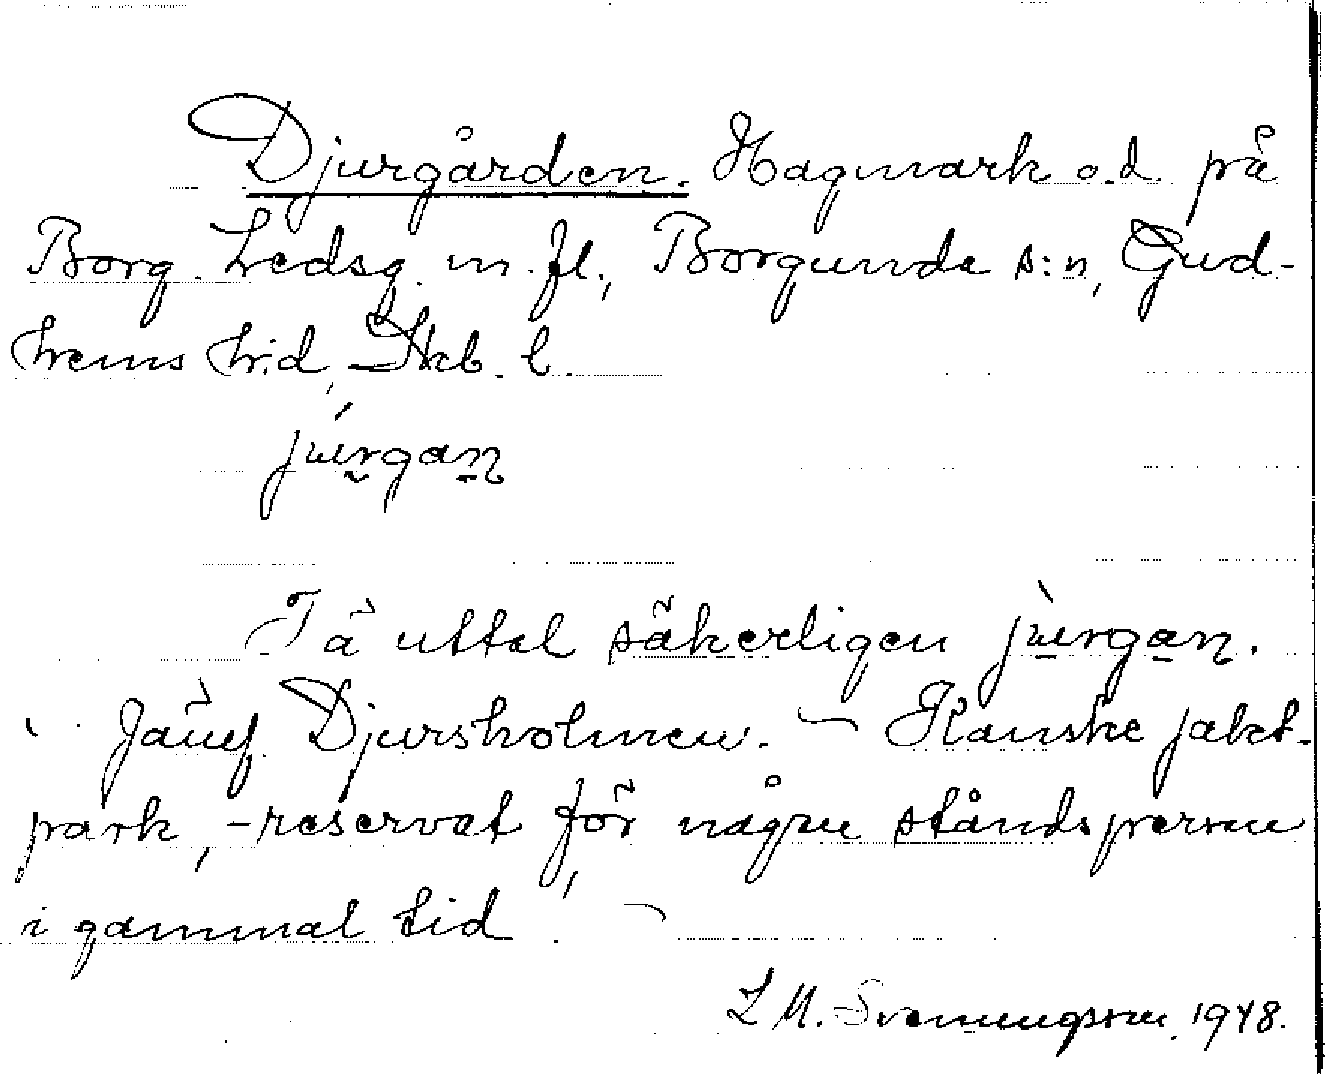 Djurgården. Hagmark o.d på
Borg. Ledsg. m. fl., Borgunda s:n, Gud-
hems h:d, Skb. l.
júrgan
Tä uttal säkerligen jùrgan.
Jämf. Djursholmen. – Kanske jakt-
park, -reservat för någon ståndsperson
i gammal tid. –
L M. Svenungsson. 1948.